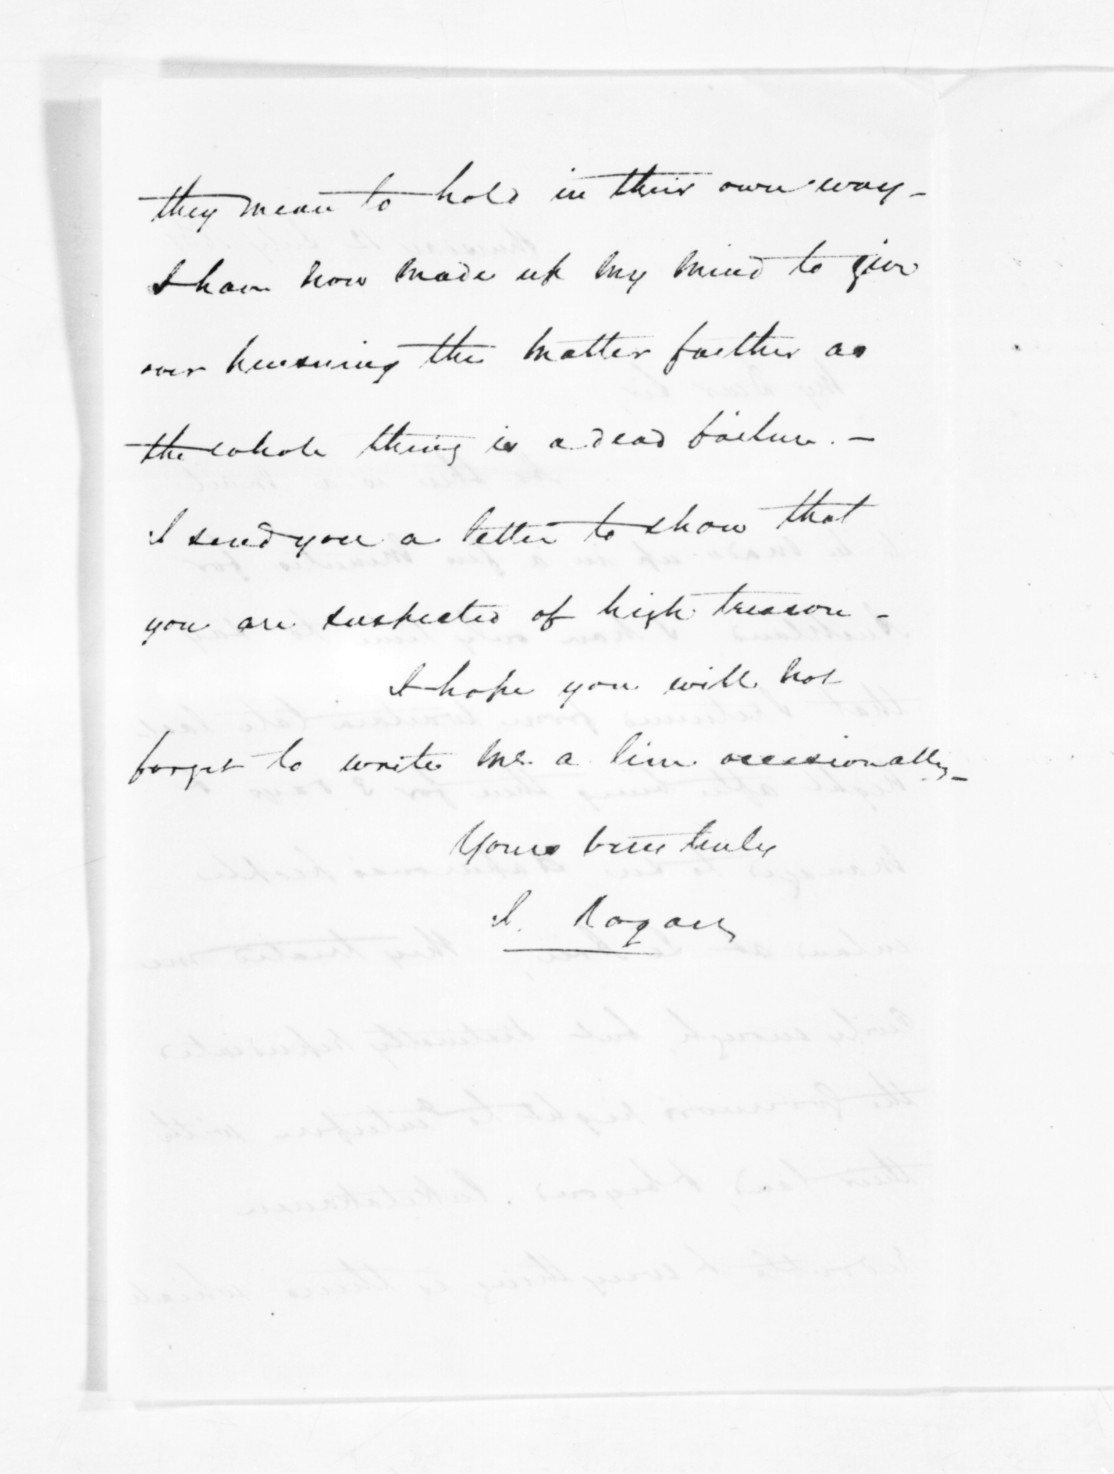 they mean to hold in their own way -
I have now made up my mind to give
over pursuing the matter farther as
the whole thing is a dead failure. -
I send you a letter to show that
you are suspected of high treason -
I hope you will not
forget to write me a line occasionally -
Yours very truly
J. Rogan